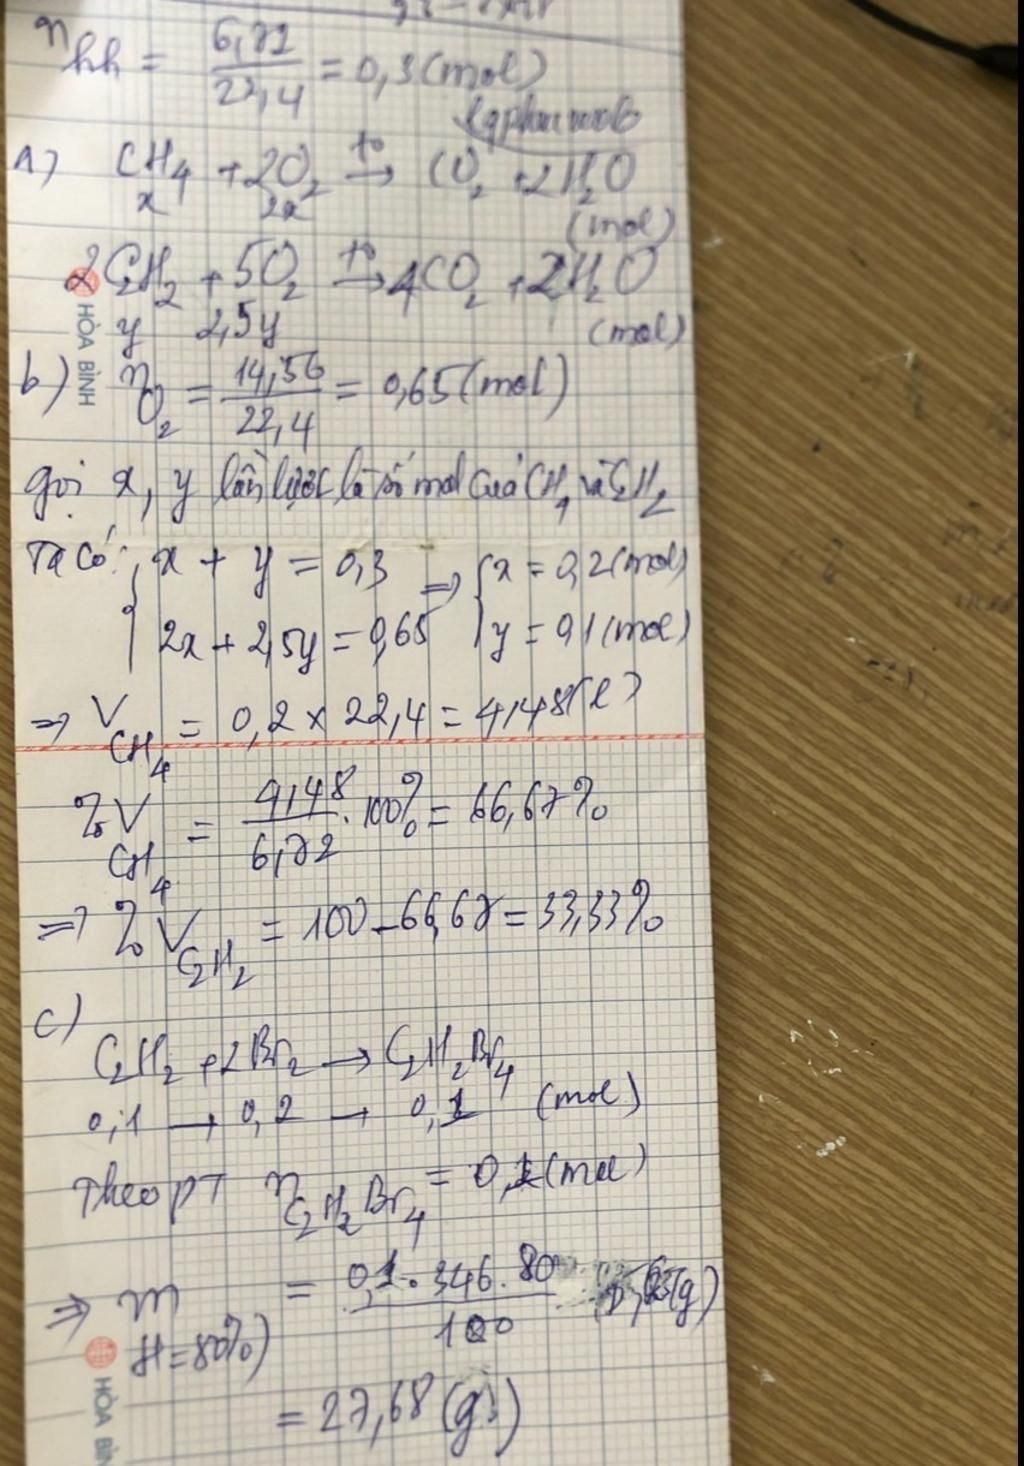 n hh = 6,72 / 22,4 = 0,3 (mol)
a) CH4 + 2O2 t° → CO2 + 2H2O
x 2x (mol)
2C2H2 + 5O2 t° → 4CO2 + 2H2O
y 2,5y (mol)
HÒA BÌNH
b) nO2 = 14,56 / 22,4 = 0,65 (mol)
gọi x, y lần lượt là số mol của CH4 và C2H2
Ta có: { x + y = 0,3 => { x = 0,2 (mol)
2x + 2,5y = 0,65 y = 0,1 (mol)
=> V CH4 = 0,2 x 22,4 = 4,48 (l)
%V CH4 = 4,48 / 6,72 . 100% = 66,67%
=> %V C2H2 = 100 - 66,67 = 33,33%
c)
C2H2 + 2Br2 → C2H2Br4
0,1 → 0,2 → 0,1 (mol)
Theo pt n C2H2Br4 = 0,1 (mol)
=> m = 0,1 . 346 . 80 / 100 (g)
H = 80%)
= 27,68 (g)
HÒA BÌN